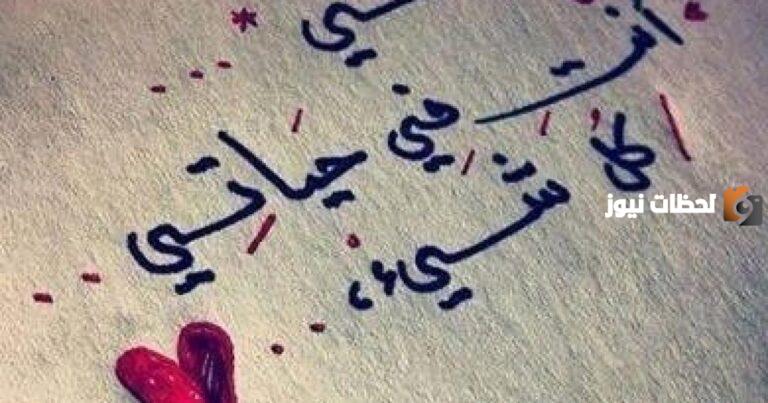 كل شيء، في حياتي
لحظات نيوز